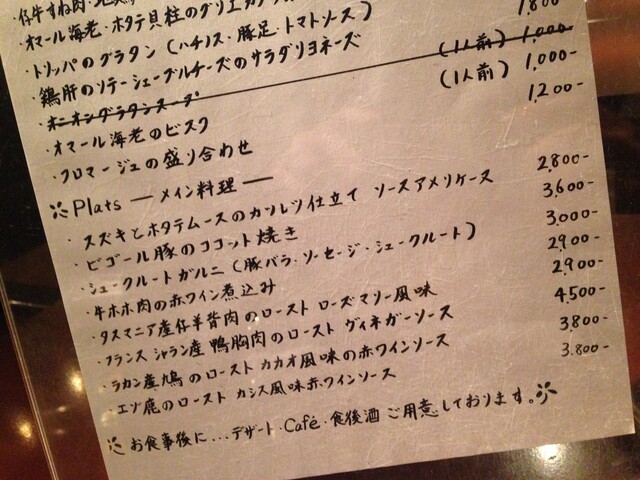 ・仔牛すね肉・
・オマール海老・ホタテ貝柱のグリエ 1,800-
・トリッパのグラタン(ハチノス・豚足・トマトソース)
・鶏肝のソテーシェーブルチーズのサラダリヨネーズ
・オニオングラタンスープ (1人前) 1,000-
・オマール海老のビスク (1人前) 1,000-
・フロマージュの盛り合わせ 1,200-
Plats ― メイン料理 ―
・スズキとホタテムースのカツレツ仕立て ソースアメリケーヌ 2,800-
・ビゴール豚のココット焼き 3,600-
・シュークルートガルニ(豚バラ・ソーセージ・シュークルート) 3,000-
・牛ホホ肉の赤ワイン煮込み 2,900-
・タスマニア産仔羊背肉のロースト ローズマリー風味 2,900-
・フランス シャラン産 鴨胸肉のロースト ヴィネガーソース 4,500-
・ラカン産鳩のロースト カカオ風味の赤ワインソース 3,800-
・エゾ鹿のロースト カシス風味赤ワインソース 3.800-
お食事後に...デザート・Café・食後酒ご用意しております。